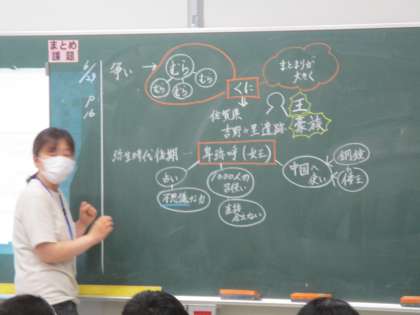 まとめ
課題
6/29
P
16
争い →
むら
むら
むら
むら
くに
まとまりが
大きく
王
豪族
佐賀県
吉野ヶ里遺跡
弥生時代後期…
卑弥呼(女王)
占い
不思議な力
1000人の
召使い
直接
会えない
中国へ
使い
銅鏡
倭王